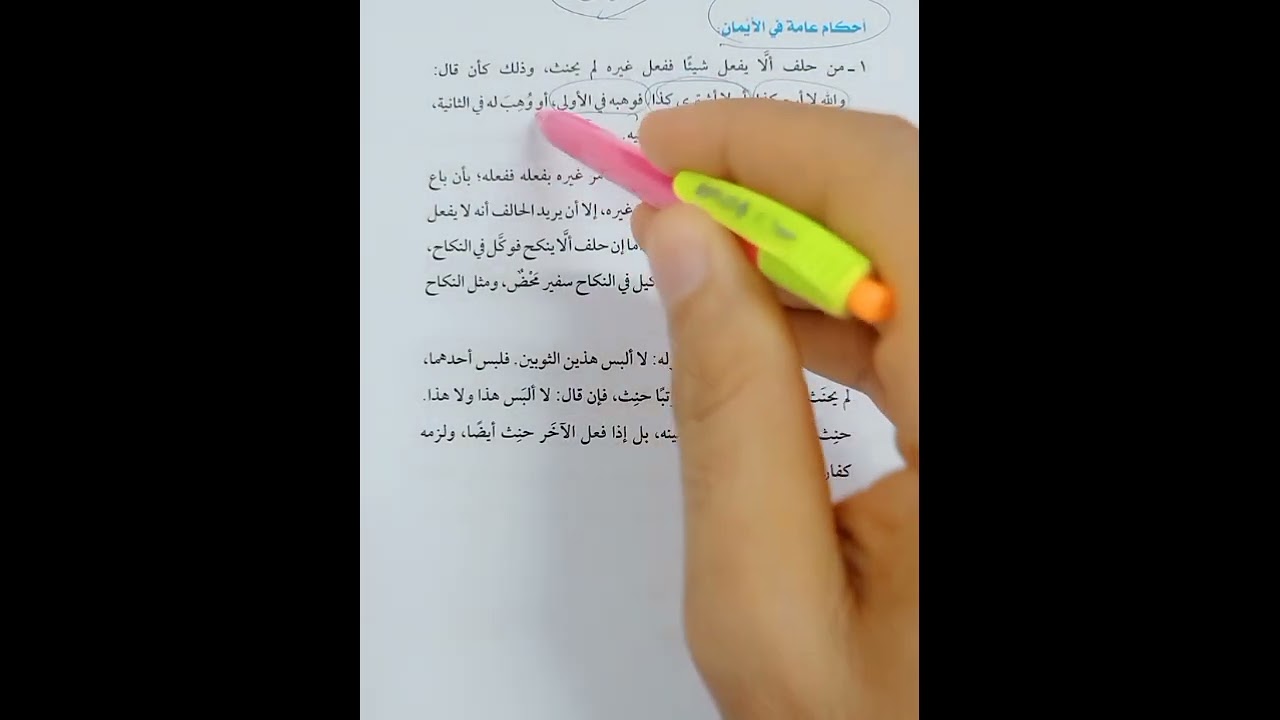 أحكام عامة في الأيمان:
١ - من حلف ألَّا يفعل شيئًا ففعل غيره لم يحنث، وذلك كأن قال:
والله لا أبيع كذا أو لا أشتري كذا فوهبه في الأولى، أو وُهِبَ له في الثانية،
غيره بفعله ففعله؛ بأن باع
غيره، إلا أن يريد الحالف أنه لا يفعل
ما إن حلف ألَّا ينكح فوكَّل في النكاح،
في النكاح سفير مَحْضٌ، ومثل النكاح
لا ألبس هذين الثوبين. فلبس أحدهما،
لم يحنَث حنِث، فإن قال: لا ألبَس هذا ولا هذا.
حنِث بل إذا فعل الآخَر حنِث أيضًا، ولزمه